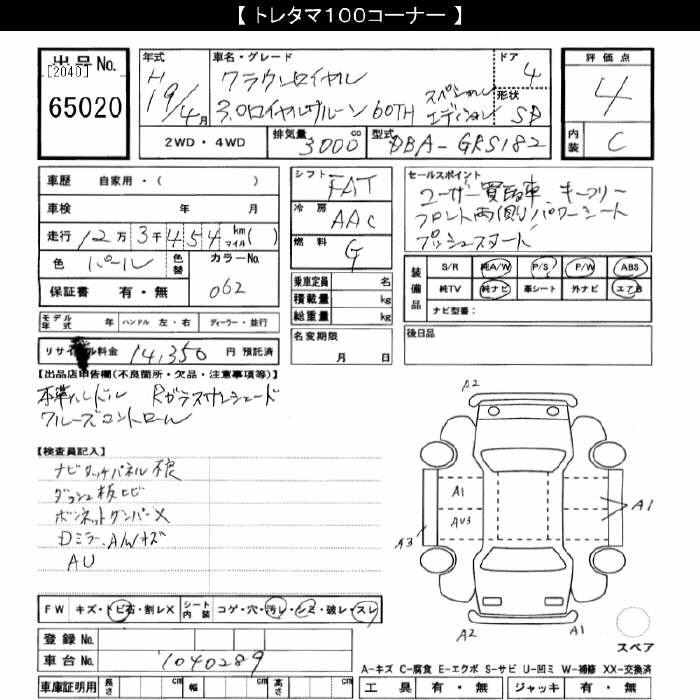 【 トレタマ100コーナー 】
出品No.
[2040]
65020
年式
H
19/4月
車名・グレード
クラウンロイヤル
3.0ロイヤルサルーン 60TH スペシャルエディション
ドア
4
形状
SD
2WD・4WD
排気量
3000 cc
型式
DBA-GRS182
評価点
4
内装
C
車歴 自家用・( )
車検 年 月
走行 12万 3千 454 km マイル ( )
色 パール
色替
カラーNo.
062
保証書 有・無
シフト
FAT
冷房
AAC
燃料
G
乗車定員 名
積載量 kg
総重量 kg
名変期限
月 日
セールスポイント
ユーザー買取車 キーフリー
フロント両側パワーシート
プッシュスタート
装備品
S/R 純A/W P/S P/W ABS
純TV 純ナビ 革シート 外ナビ エアB
ナビ型番:
後日品
モデル年式 年 ハンドル 左・右 ディーラー・並行
リサイクル料金 14,350 円 預託済
【出品店申告欄(不良箇所・欠品・注意事項等)】
本革ハンドル Rガラスサンシェード
クルーズコントロール
【検査員記入】
ナビタッチパネル不良
ダッシュ板ヒビ
ボンネットダンパーX
Dミラー、A/Wキズ
AU
A2
A1
AU3
A1
A3
A2
A1
スペア
FW キズ・トビ石・割レX
シート内装 コゲ・穴・汚レ・シミ・破レ・スレ
登録No.
車台No. 1040289
車庫証明用 長さ cm 幅 cm 高さ cm
A-キズ C-腐食 E-エクボ S-サビ U-凹ミ W-補修 XX-交換済
工具 有・無 ジャッキ 有・無